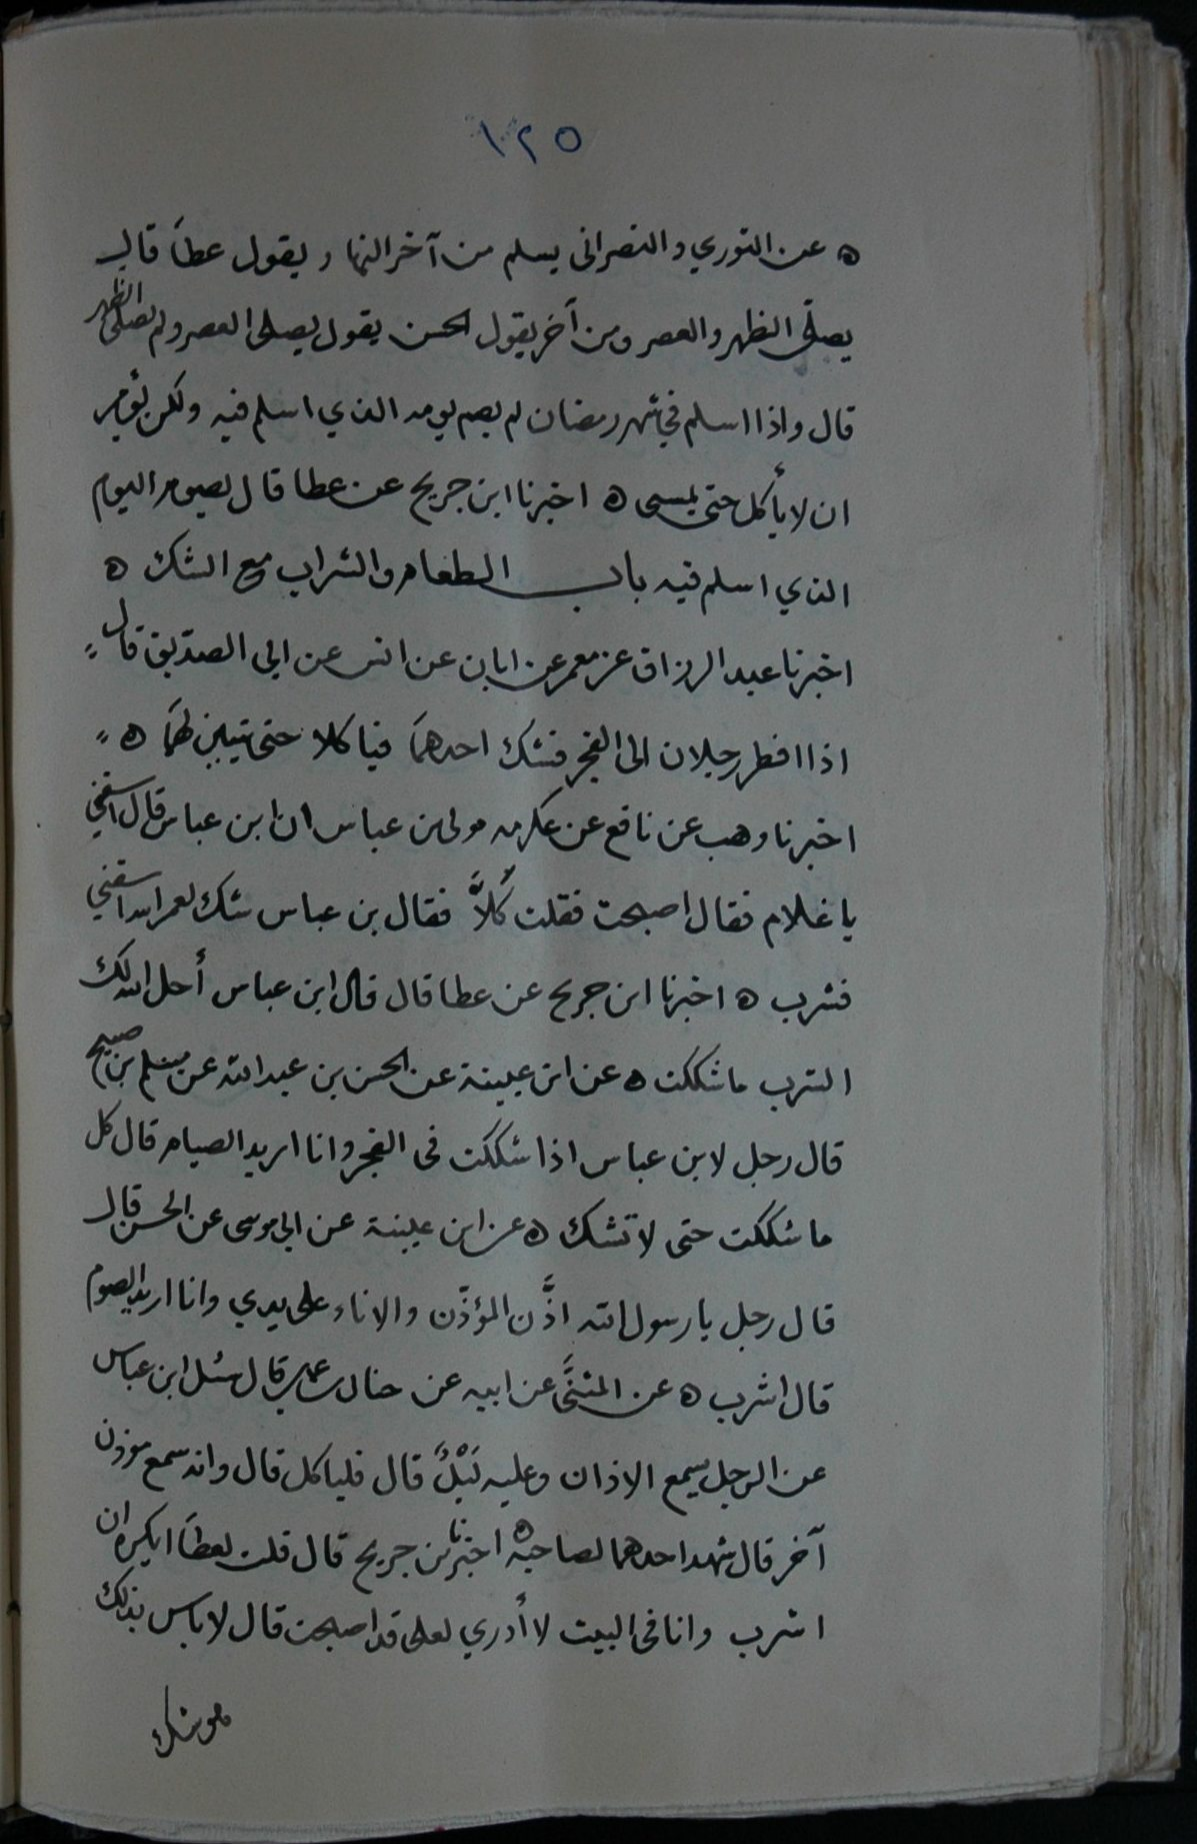 ١٢٥
ه عن الثوري والنصرانى يسلم من آخر النهار ويقول عطآ قال
يصلى الظهر والعصر ومن آخر يقول الحسن يقول يصلى العصر ولم يصلى الظهر
قال واذا اسلم في شهر رمضان لم يصم يومه الذي اسلم فيه ولكن يؤمر
ان لا يأكل حتى يمسى ه اخبرنا ابن جريح عن عطا قال يصوم اليوم
الذي اسلم فيه باب الطعام والشراب مع الشك ه
اخبرنا عبد الرزاق عن معمر عن ابان عن انس عن ابى الصديق قال
اذا افطر رجلان الى الفجر فشك احدهما فيا كلا حتى يتبين لهما ه
اخبرنا وهب عن نافع عن عكرمه مولى بن عباس ان ابن عباس قال اسقني
يا غلام فقال اصبحت فقلت كُلاًّ فقال بن عباس شك لعمر الله اسقني
فشرب ه اخبرنا ابن جريح عن عطا قال قال ابن عباس أحل الله لك
الشرب ما شككت ه عن ابن عيينة عن الحسن بن عبد الله عن مسلم بن صبيح
قال رجل لابن عباس اذا شككت فى الفجر وانا اريد الصيام قال كل
ما شككت حتى لا تشك ه عن ابن عيينة عن ابى موسى عن الحسن قال
قال رجل يا رسول الله اذَّن المؤذّن والاناء على يدي وانا اريد الصوم
قال اشرب ه عن المثنَّى عن ابيه عن قال سئل ابن عباس
عن الرجل يسمع الاذان وعليه لَيْلٌ قال فليا كل قال وانه سمع موذن
آخر قال شهد احدهما لصاحبه ه اخبرنا بن جريح قال قلت لعطآ ايكره ان
اشرب وانا فى البيت لا أدري لعلى قد اصبحت قال لا باس بذلك
هو شك